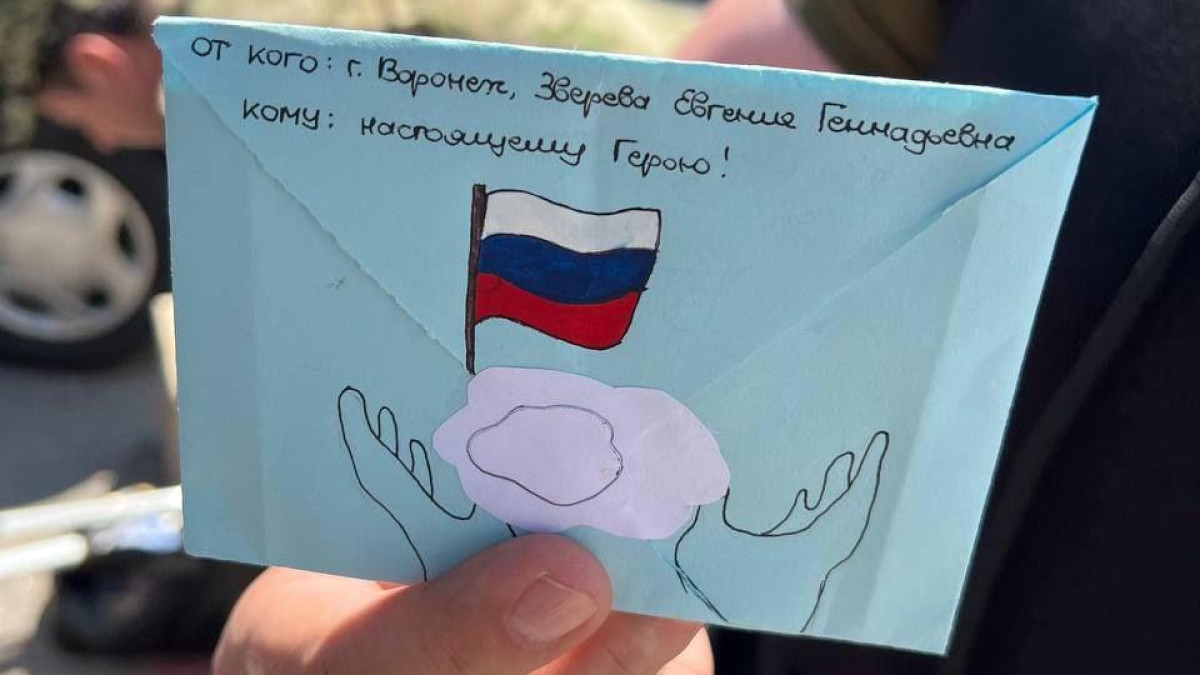 от кого: г. Воронеж, Зверева Евгения Геннадьевна
кому: настоящему Герою!